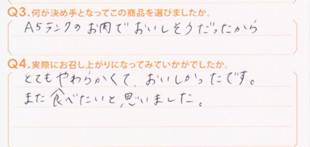 Q3.何が決め手となってこの商品を選びましたか。
A5ランクのお肉でおいしそうだったから
Q4.実際にお召し上がりになってみていかがでしたか。
とてもやわらかくて、おいしかったです。
また食べたいと思いました。